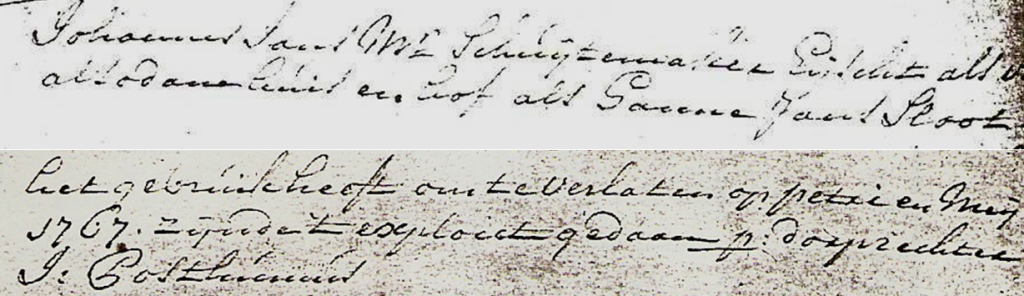 Johannes Jans Mr Schuijtemaker Eischt als
alsodane huis en hof als Hanne Jans Sloot
het gebruik heeft om te verlaten op petri en Meij
1767. zijnde 't exploict gedaan p: dorprechter
J: Posthumus